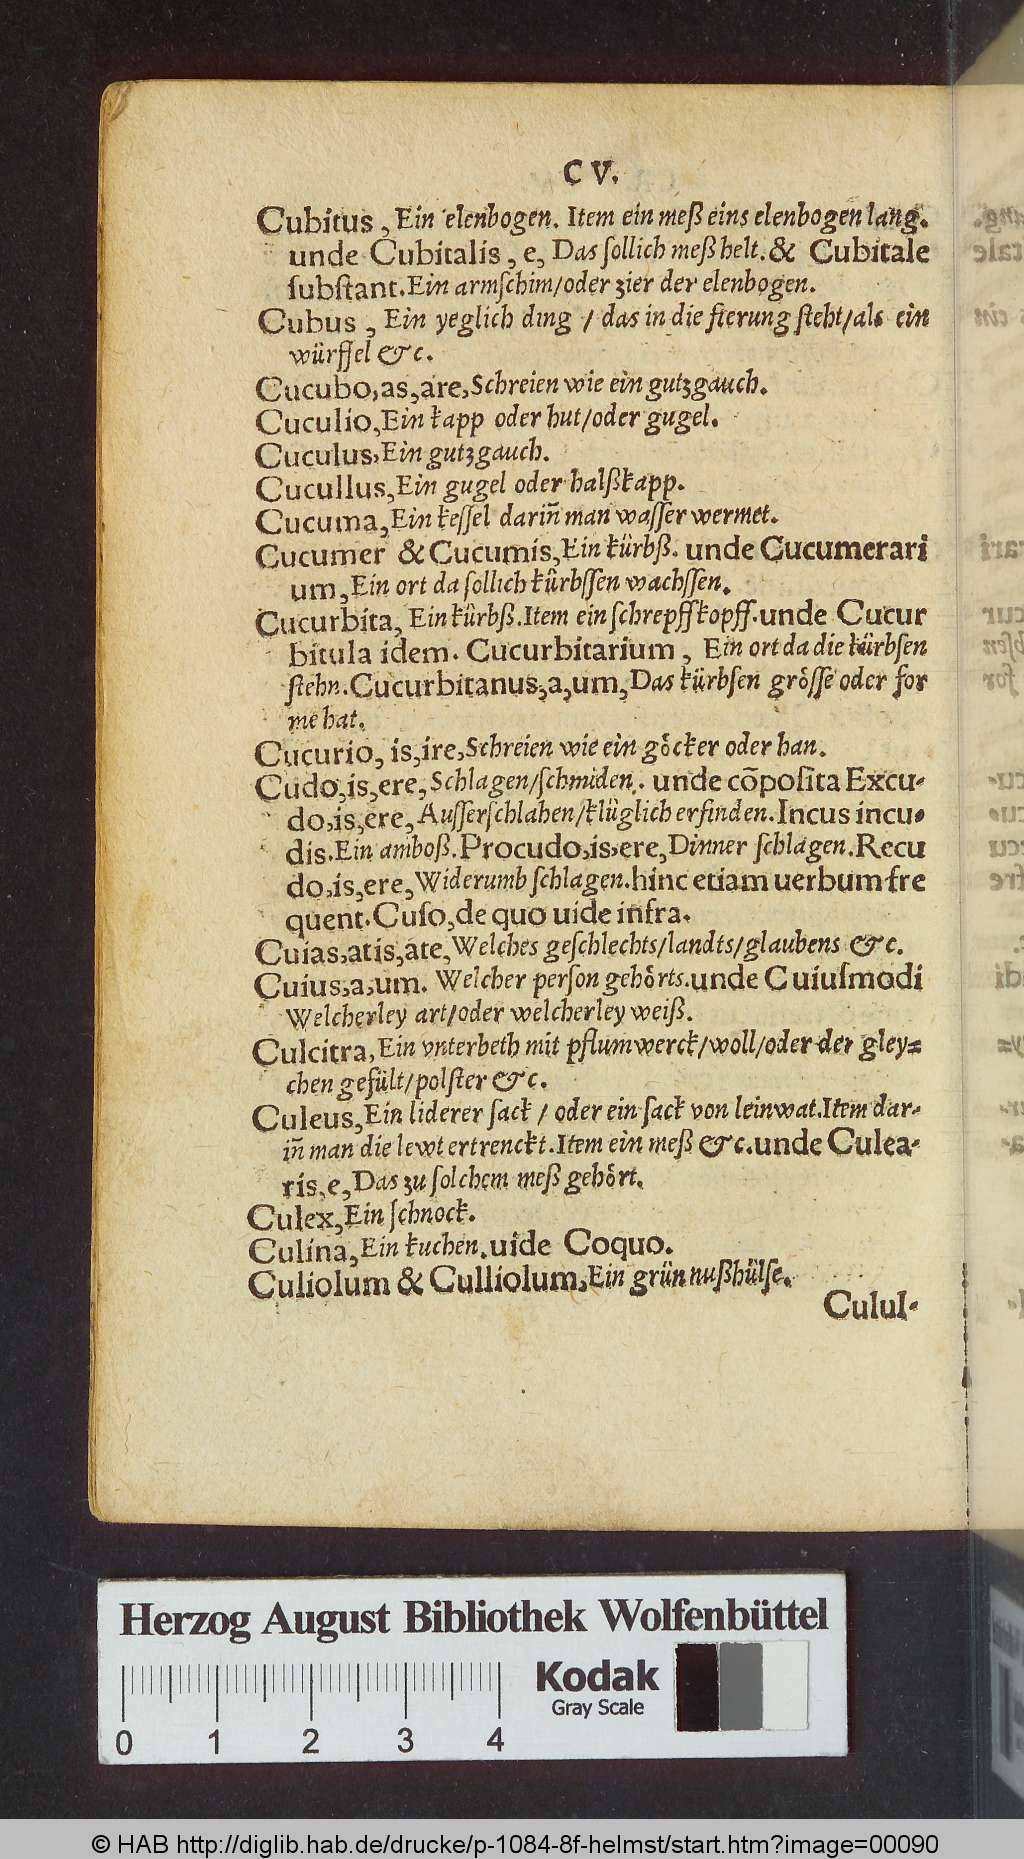 C V.
Cubitus, Ein elenbogen. Item ein meß eins elenbogen lang.
unde Cubitalis, e, Das ſollich meß helt. & Cubitale
ſubſtant. Ein armſchim/oder zier der elenbogen.
Cubus, Ein yeglich ding / das in die fierung ſteht/als ein
würffel &c.
Cucubo, as, are, Schreien wie ein gutzgauch.
Cuculio, Ein kapp oder hut/oder gugel.
Cuculus, Ein gutzgauch.
Cucullus, Ein gugel oder halßkapp.
Cucuma, Ein keſſel dariñ man waſſer wermet.
Cucumer & Cucumis, Ein kürbß. unde Cucumerari
um, Ein ort da ſollich kürbſſen wachſſen.
Cucurbita, Ein kürbß. Item ein ſchrepffkopff. unde Cucur
bitula idem. Cucurbitarium, Ein ort da die kürbſen
ſtehn. Cucurbitanus, a, um, Das kürbſen gröſſe oder for
me hat.
Cucurio, is, ire, Schreien wie ein göcker oder han.
Cudo, is, ere, Schlagen/ſchmiden. unde cõpoſita Excu-
do, is, ere, Auſſerſchlahen/klüglich erfinden. Incus incu-
dis. Ein amboß. Procudo, is, ere, Dinner ſchlagen. Recu
do, is, ere, Widerumb ſchlagen. hinc etiam uerbum fre
quent. Cuſo, de quo uide infra.
Cuias, atis, ate, Welches geſchlechts/landts/glaubens &c.
Cuius, a, um. Welcher perſon gehörts. unde Cuiuſmodi
Welcherley art/oder welcherley weiß.
Culcitra, Ein vnterbeth mit pflumwerck/woll/oder der gley=
chen gefült/polſter &c.
Culeus, Ein liderer ſack / oder ein ſack von leinwat. Item dar-
iñ man die lewt ertrenckt. Item ein meß &c. unde Culea-
ris, e, Das zu ſolchem meß gehört.
Culex, Ein ſchnock.
Culina, Ein kuchen. uide Coquo.
Culiolum & Culliolum, Ein grün nußhülſe.
Culul-
Herzog August Bibliothek Wolfenbüttel
0 1 2 3 4
Kodak
Gray Scale
© HAB http://diglib.hab.de/drucke/p-1084-8f-helmst/start.htm?image=00090